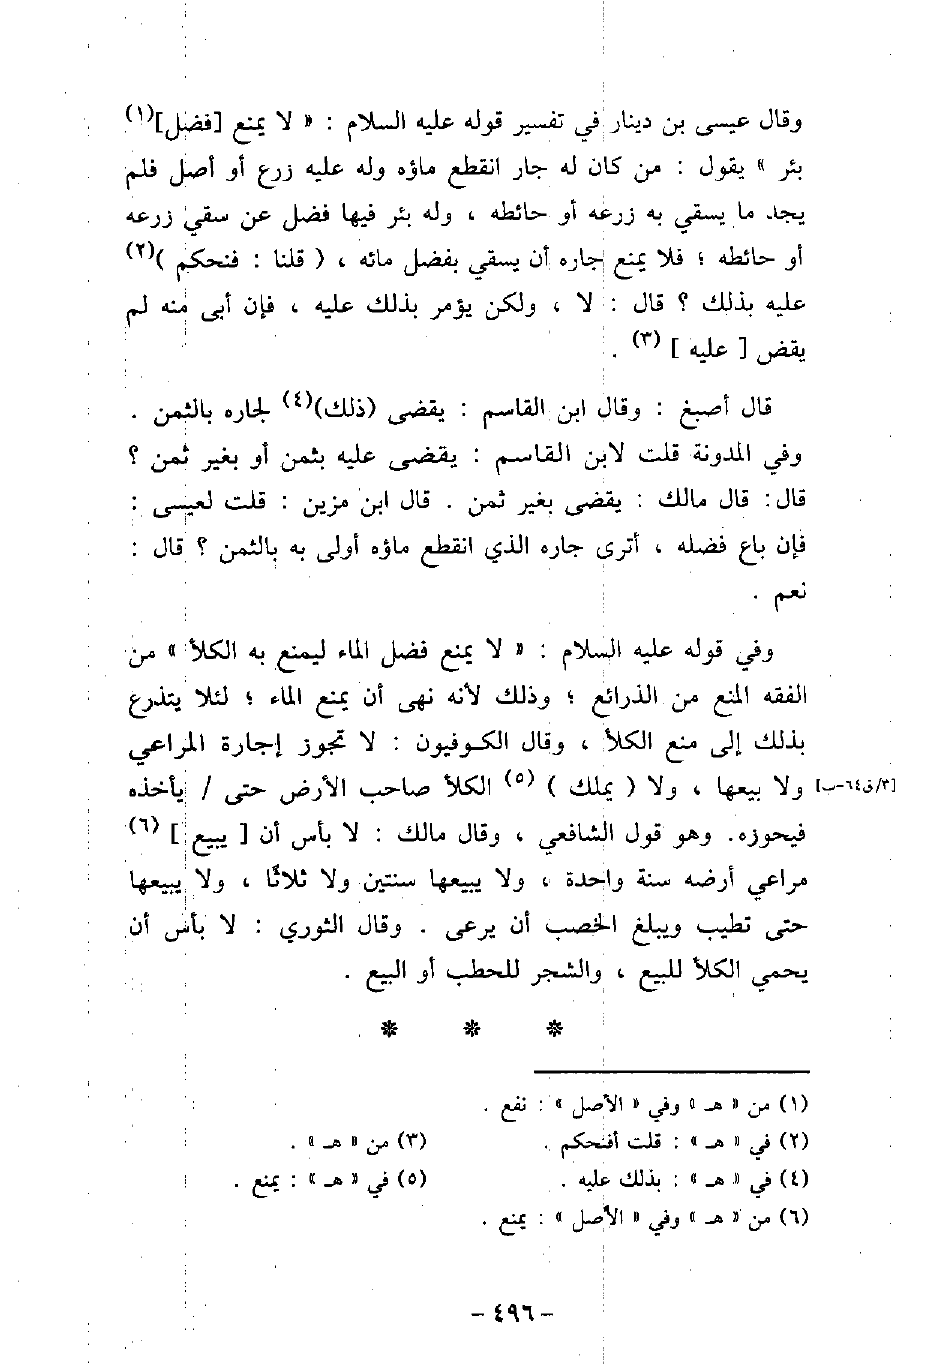 وقال عيسى بن دينار في تفسير قوله عليه السلام : « لا يمنع [فضل](١)
بئر » يقول : من كان له جار انقطع ماؤه وله عليه زرع أو أصل فلم
يجد ما يسقي به زرعه أو حائطه ، وله بئر فيها فضل عن سقي زرعه
أو حائطه ؛ فلا يمنع جاره أن يسقي بفضل مائه ، ( قلنا : فنحكم )(٢)
عليه بذلك ؟ قال : لا ، ولكن يؤمر بذلك عليه ، فإن أبى منه لم
يقض [ عليه ] (٣) .
قال أصبغ : وقال ابن القاسم : يقضى (ذلك)(٤) لجاره بالثمن .
وفي المدونة قلت لابن القاسم : يقضى عليه بثمن أو بغير ثمن ؟
قال: قال مالك : يقضى بغير ثمن . قال ابن مزين : قلت لعيسى :
فإن باع فضله ، أترى جاره الذي انقطع ماؤه أولى به بالثمن ؟ قال :
نعم .
وفي قوله عليه السلام : « لا يمنع فضل الماء ليمنع به الكلأ » من
الفقه المنع من الذرائع ؛ وذلك لأنه نهى أن يمنع الماء ؛ لئلا يتذرع
بذلك إلى منع الكلأ ، وقال الكوفيون : لا تجوز إجارة المراعي
[٣/ق٦٤-ب] ولا بيعها ، ولا ( يملك ) (٥) الكلأ صاحب الأرض حتى / يأخذه
فيحوزه. وهو قول الشافعي ، وقال مالك : لا بأس أن [ يبيع ] (٦)
مراعي أرضه سنة واحدة ، ولا يبيعها سنتين ولا ثلاثًا ، ولا يبيعها
حتى تطيب ويبلغ الخصب أن يرعى . وقال الثوري : لا بأس أن
يحمي الكلأ للبيع ، والشجر للحطب أو البيع .
* * *
(١) من « هـ » وفي « الأصل » : نفع .
(٢) في « هـ » : قلت أفنحكم . (٣) من « هـ » .
(٤) في « هـ » : بذلك عليه . (٥) في « هـ » : يمنع .
(٦) من « هـ » وفي « الأصل » : يمنع .
- ٤٩٦ -